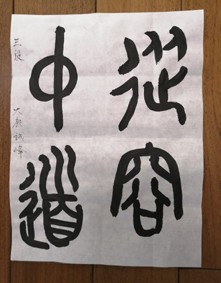 從容
中道
三段